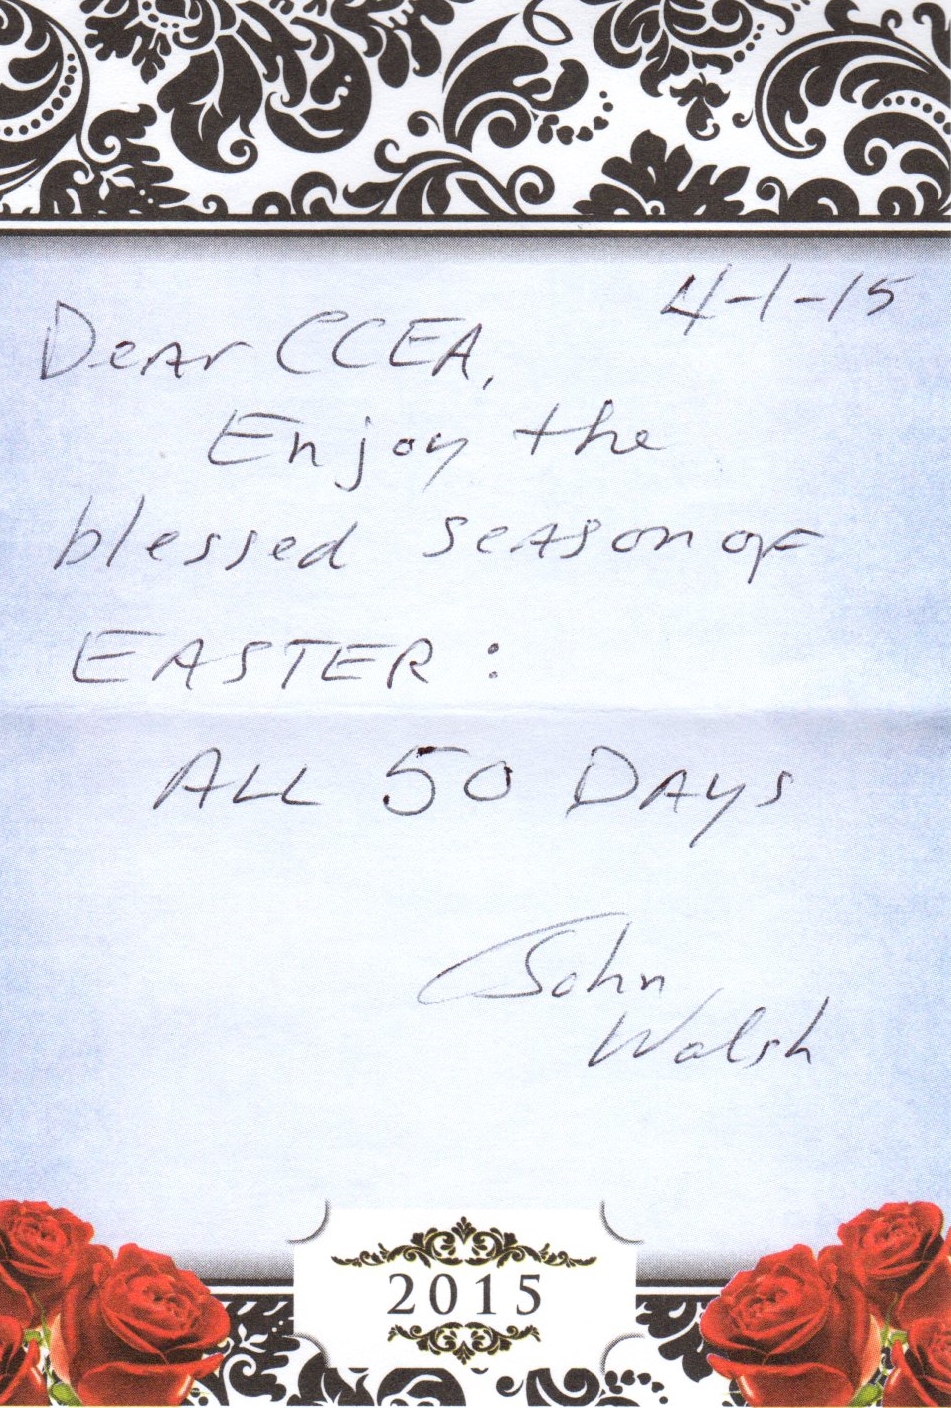 4-1-15
Dear CCEA,
Enjoy the
blessed season of
EASTER:
ALL 50 DAYS
John
Walsh
2015